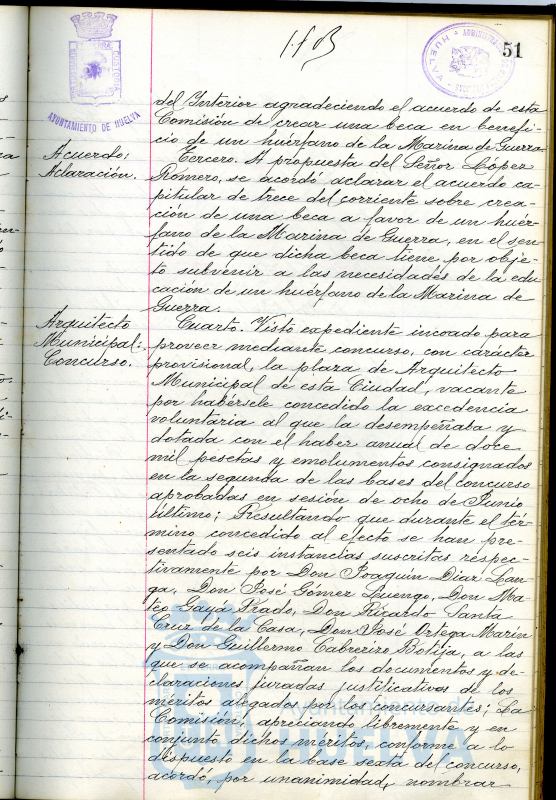 51
AYUNTAMIENTO DE HUELVA
HUELVA
del Interior agradeciendo el acuerdo de esta
Comisión de crear una beca en benefi-
cio de un huérfano de la Marina de Guerra
Acuerdo:
Aclaración.
Tercero. A propuesta del Señor López
Romero, se acordó aclarar el acuerdo ca-
pitular de trece del corriente sobre crea-
ción de una beca a favor de un huér-
fano de la Marina de Guerra, en el sen-
tido de que dicha beca tiene por obje-
to subvenir a las necesidades de la edu-
cación de un huérfano de la Marina de
Guerra.
Arquitecto
Municipal:
Concurso.
Cuarto. Visto expediente incoado para
proveer mediante concurso, con carácter
provisional, la plaza de Arquitecto
Municipal de esta Ciudad, vacante
por habérsele concedido la excedencia
voluntaria al que la desempeñaba y
dotada con el haber anual de doce
mil pesetas y emolumentos consignados
en la segunda de las bases del concurso
aprobadas en sesión de ocho de Junio
último; Resultando que durante el tér-
mino concedido al efecto se han pre-
sentado seis instancias suscritas respec-
tivamente por Don Joaquín Díaz Lan-
ga, Don José Gómez Luengo, Don Ma-
teo Gayá Prado, Don Ricardo Santa
Cruz de la Casa, Don José Ortega Marín
y Don Guillermo Cabrerizo Botija, a las
que se acompañan los documentos y de-
claraciones juradas justificativos de los
méritos alegados por los concursantes; La
Comisión, apreciando libremente y en
conjunto dichos méritos, conforme a lo
dispuesto en la base sexta del concurso,
acordó, por unanimidad, nombrar